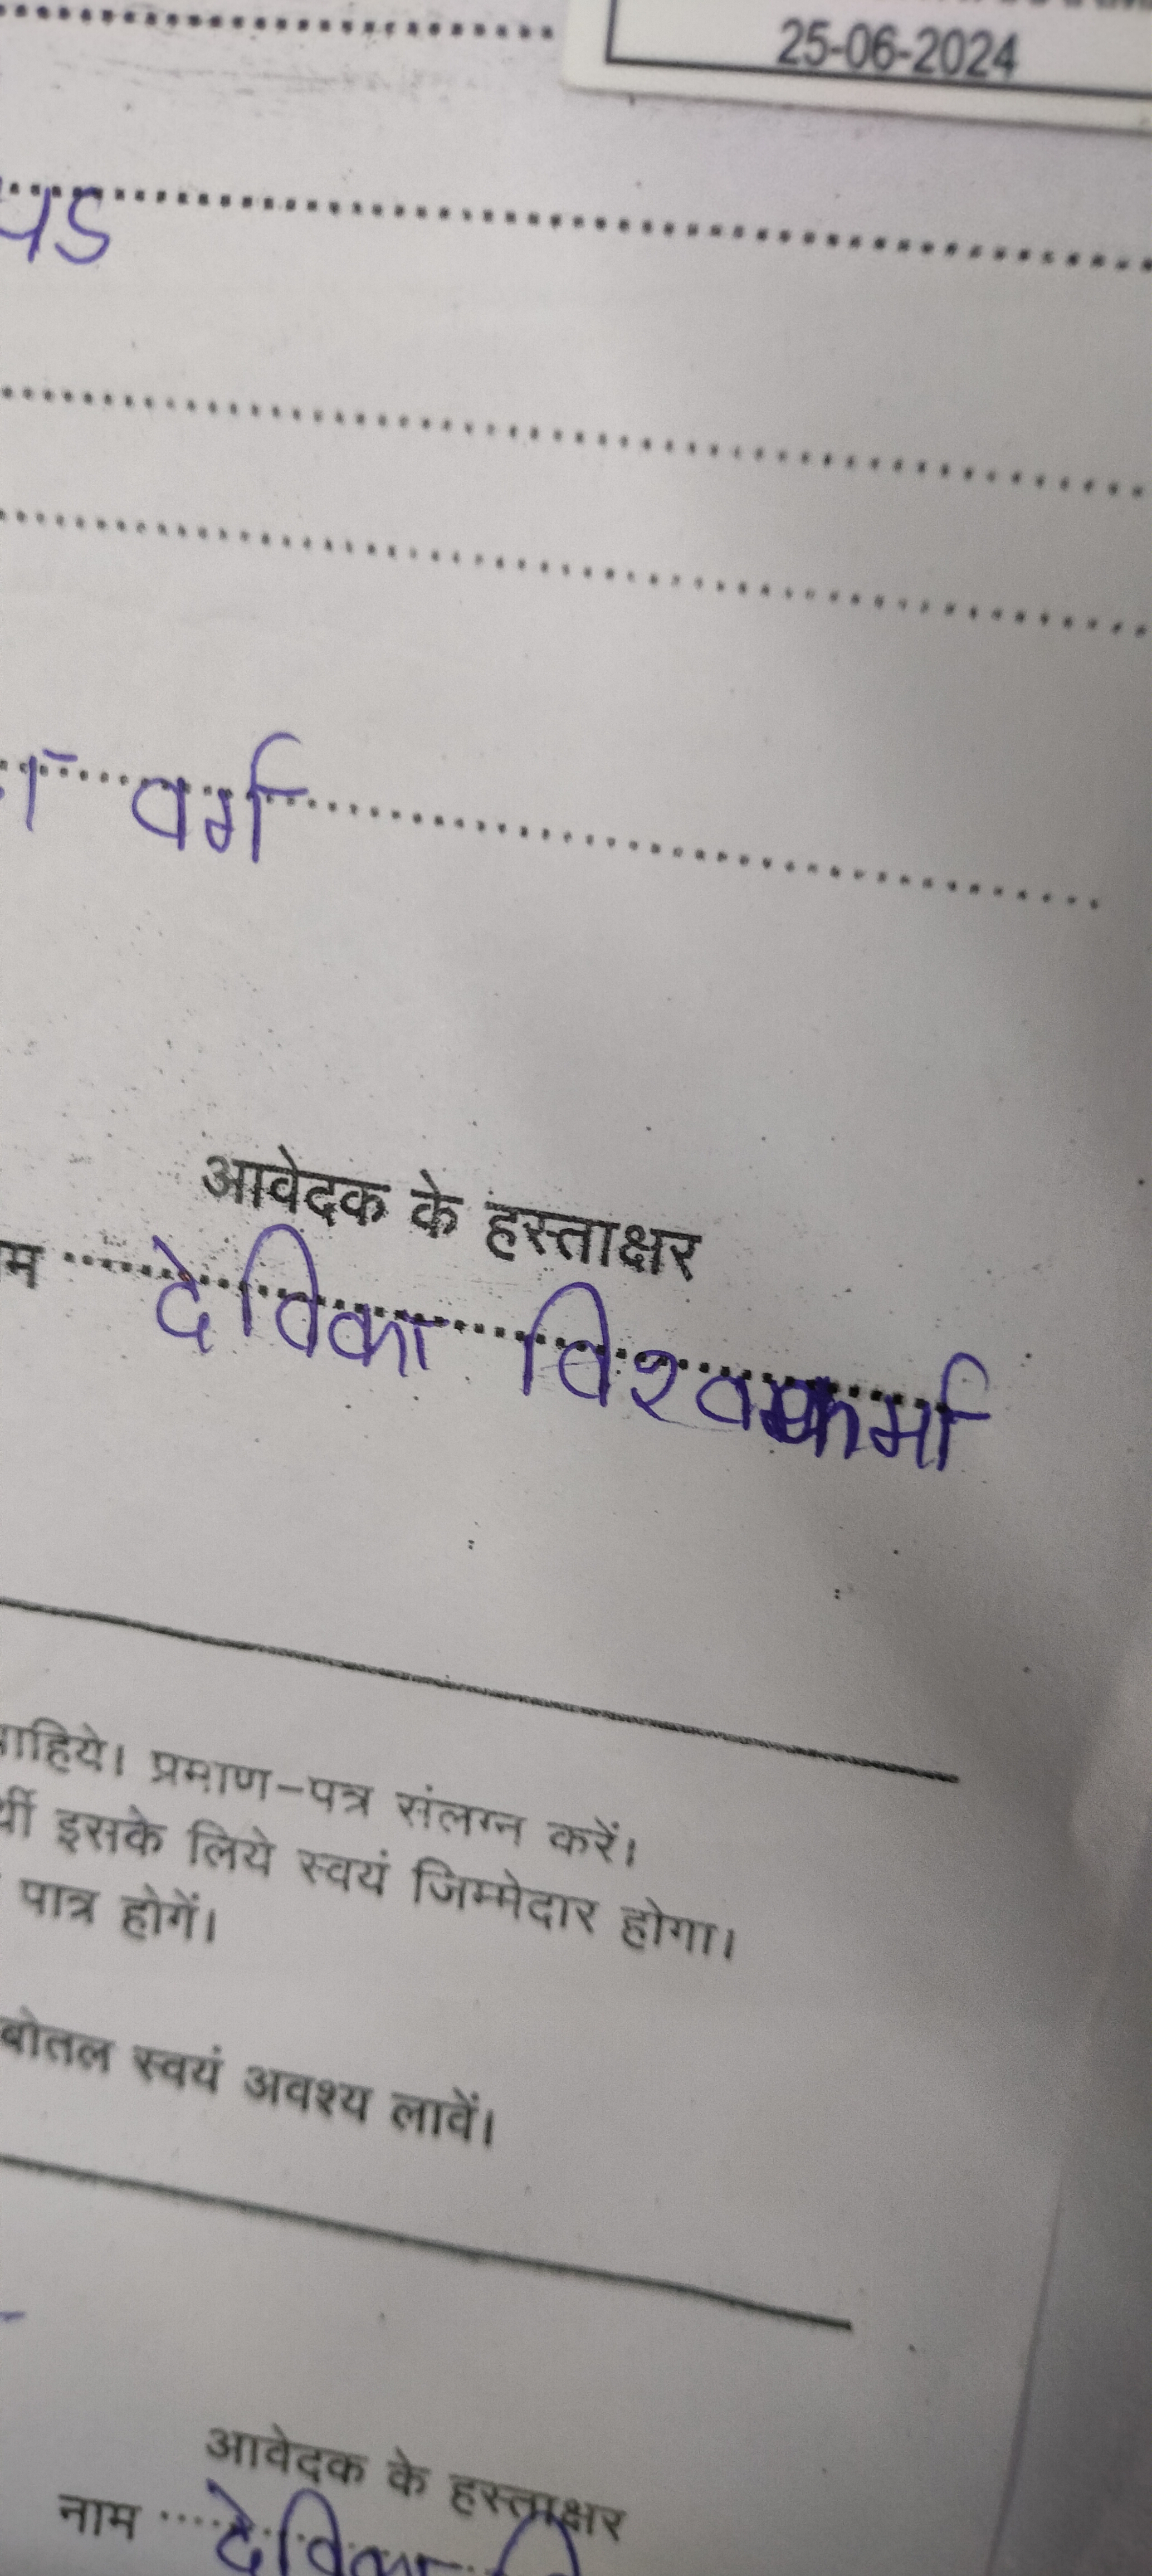 25-06-2024
वर्ग
आवेदक के हस्ताक्षर
देविका विश्वकर्मा
प्रमाण-पत्र संलग्न करें।
इसके लिये स्वयं जिम्मेदार होगा।
पात्र होगें।
बोतल स्वयं अवश्य लावें।
आवेदक के हस्ताक्षर
नाम देविका